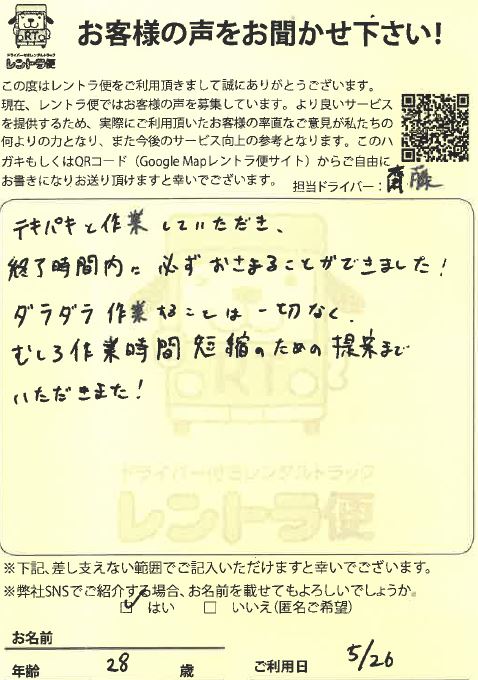 ドライバー付きレンタルトラック
レントラ便
お客様の声をお聞かせ下さい!
この度はレントラ便をご利用頂きまして誠にありがとうございます。
現在、レントラ便ではお客様の声を募集しています。より良いサービス
を提供するため、実際にご利用頂いたお客様の率直なご意見が私たちの
何よりの力となり、また今後のサービス向上の参考となります。このハ
ガキもしくはQRコード(Google Mapレントラ便サイト)からご自由に
お書きになりお送り頂けますと幸いでございます。
担当ドライバー:齋藤
テキパキと作業していただき、
終了時間内に必ずおさまることができました!
ダラダラ作業することは一切なく、
むしろ作業時間短縮のための提案まで
いただきました!
ドライバー付きレンタルトラック
レントラ便
※下記、差し支えない範囲でご記入いただけますと幸いでございます。
※弊社SNSでご紹介する場合、お名前を載せてもよろしいでしょうか。
☑ はい □ いいえ(匿名ご希望)
お名前
年齢 28 歳 ご利用日 5/26